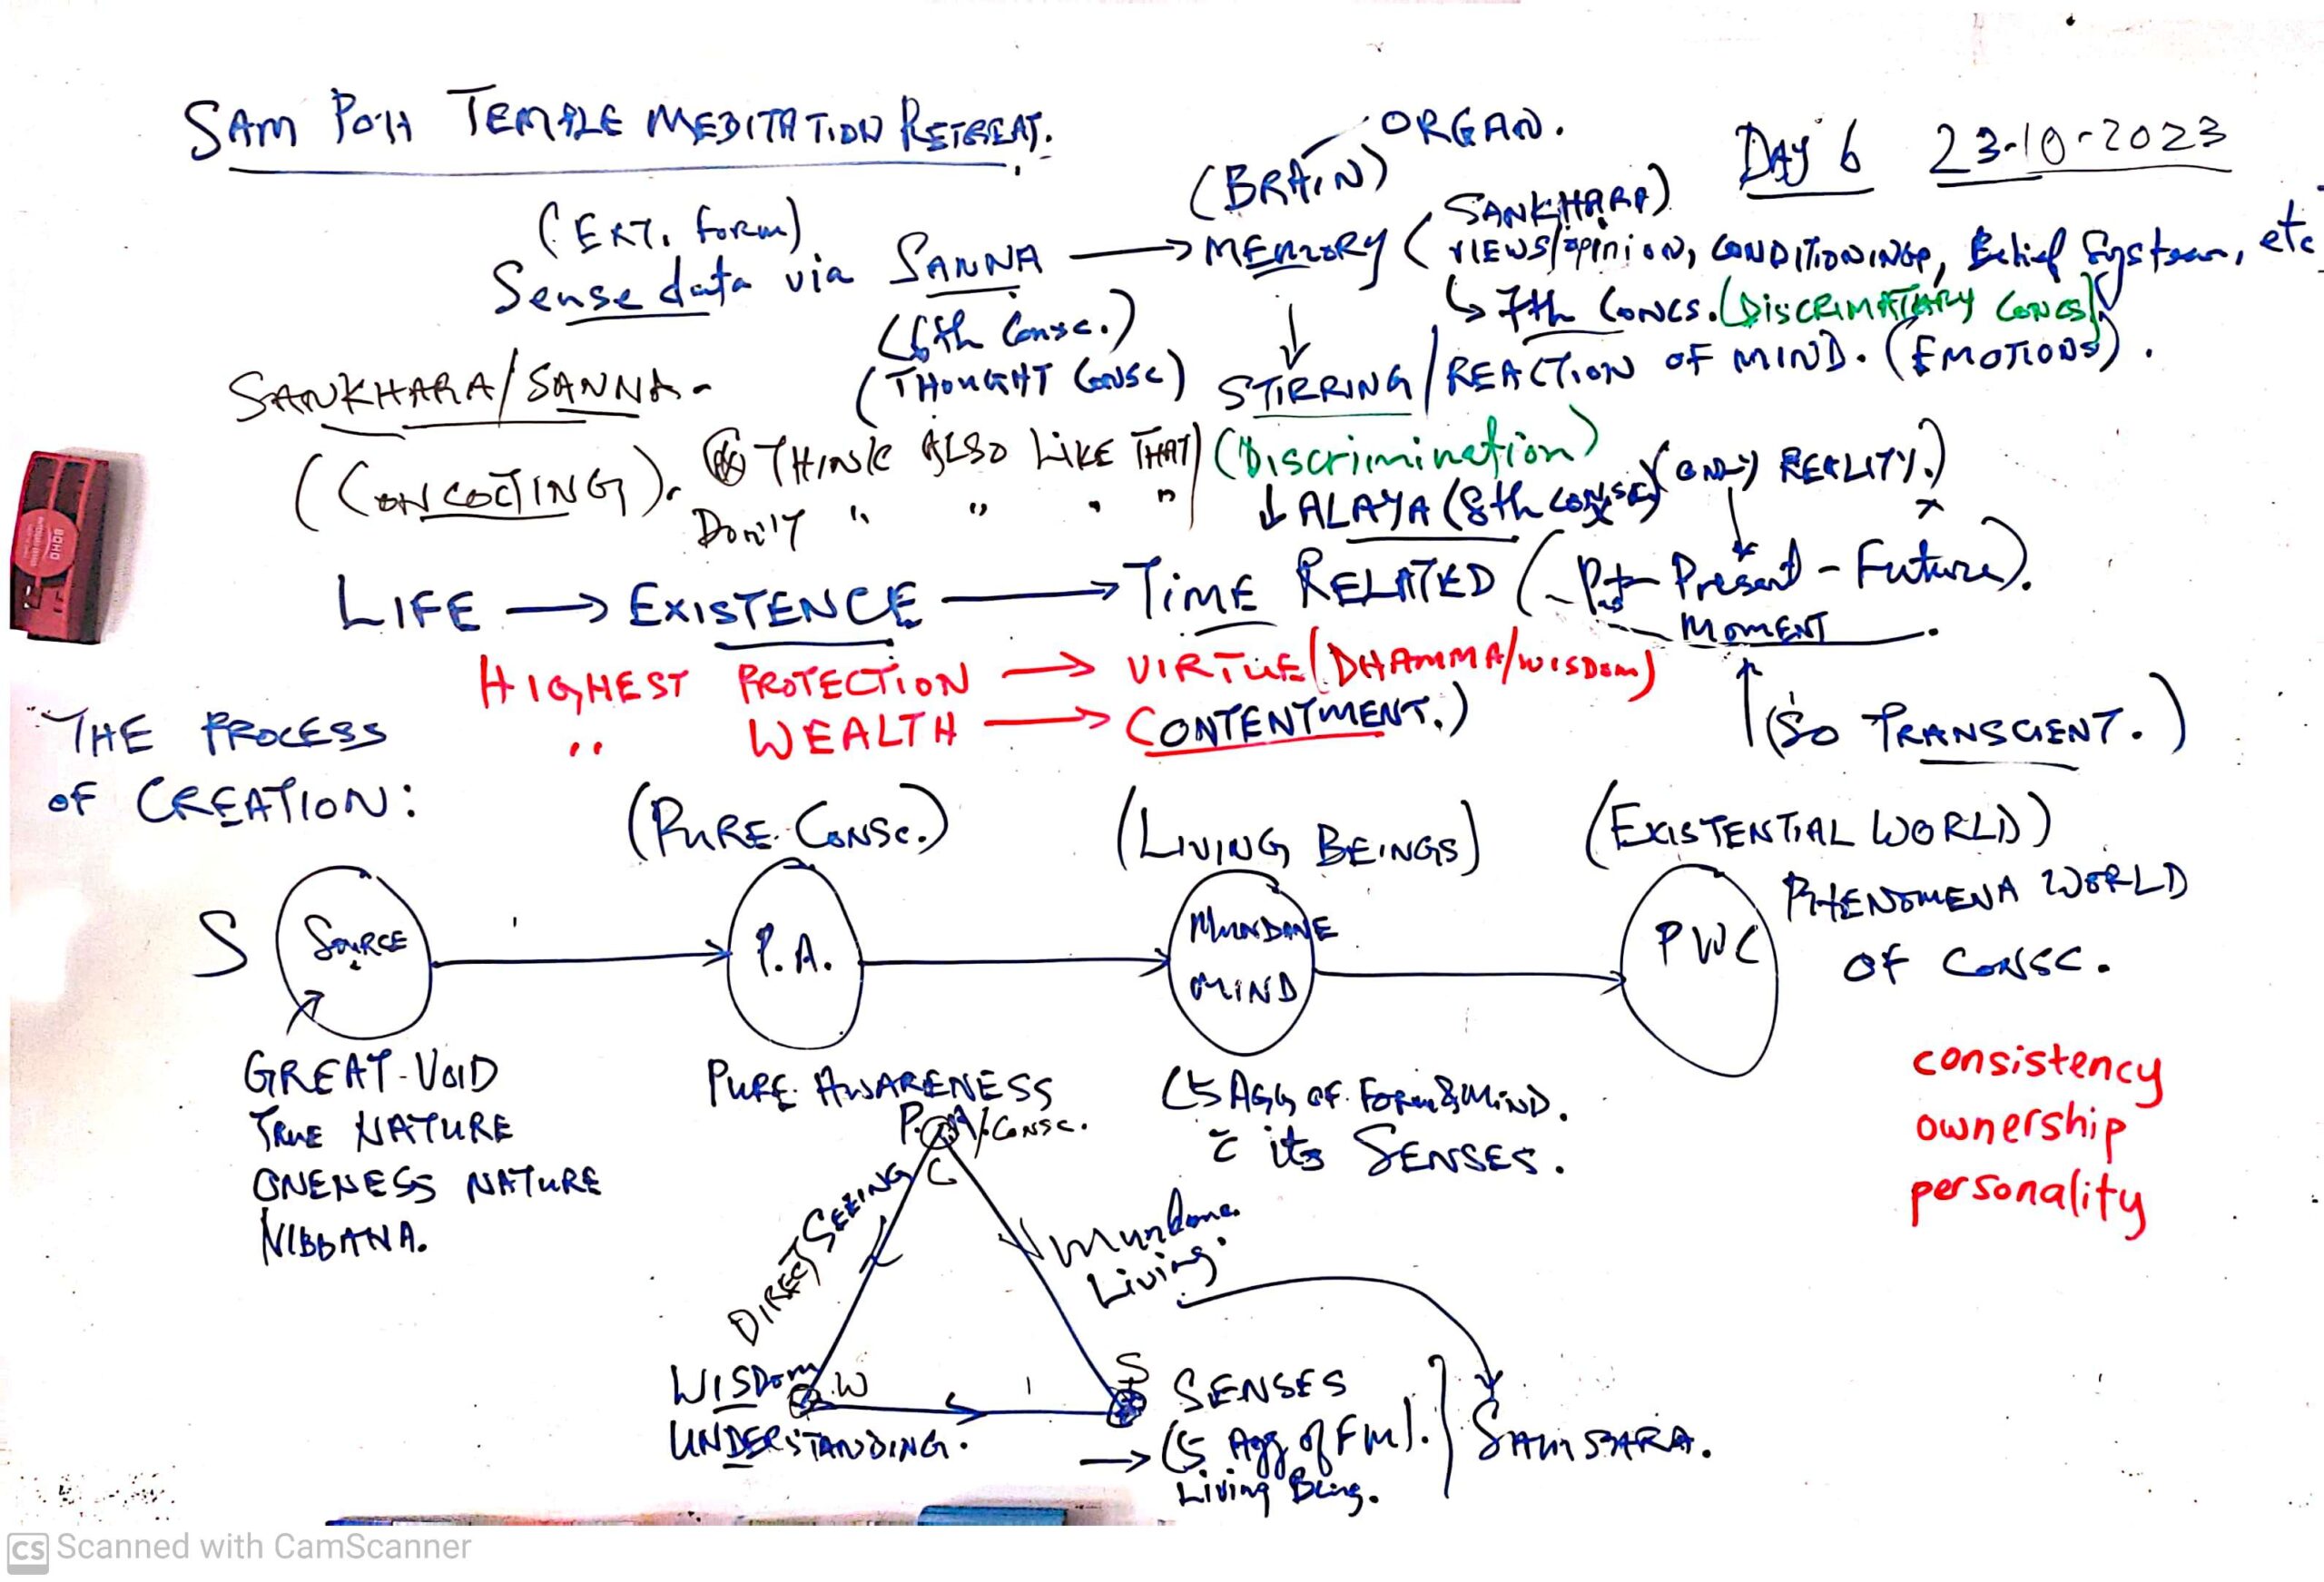 SAM POH TEMPLE MEDITATION RETREAT.
DAY 6 23-10-2023
(BRAIN) ORGAN.
(EXT. form)
(SANKHARA)
Sense data via SANNA → MEMORY (VIEWS/opinion, CONDITIONINGS, Belief System, etc
↳ 7th CONCS. (DISCRIMATARY CONCS)
(6th Consc.)
(THOUGHT CONSC)
↓
STIRRING/REACTION OF MIND. (EMOTIONS).
SANKHARA/SANNA
(CONCOCTING).
THINK ALSO LIKE THAT
DON'T " " " "
(Discrimination)
↓ ALAYA (8th CONSC)
(ONLY REALITY.)
LIFE → EXISTENCE → TIME RELATED (Past - Present - Future).
MOMENT
HIGHEST PROTECTION → VIRTUE (DHAMMA/WISDOM)
" WEALTH → CONTENTMENT.)
↑(SO TRANSCIENT.)
THE PROCESS
OF CREATION:
(PURE CONSC.)
(LIVING BEINGS)
(EXISTENTIAL WORLD)
S
SOURCE
P.A.
MUNDANE
MIND
PWC
PHENOMENA WORLD
OF CONSC.
GREAT-VOID
TRUE NATURE
ONENESS NATURE
NIBBANA.
PURE AWARENESS
P.A/CONSC.
C
(5 AGG OF FORM & MIND.
c̄ its SENSES.
consistency
ownership
personality
DIRECT SEEING
Mundane
Living.
WISDOM W
UNDERSTANDING.
S
SENSES
→ (5 Agg of FM).
Living Being.
SAMSARA.
BOHO
CS Scanned with CamScanner